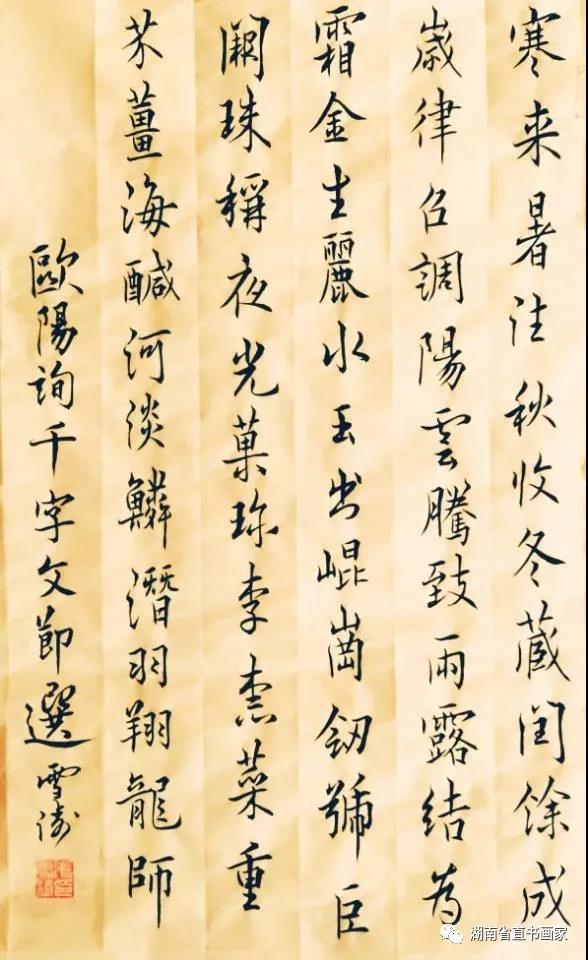 寒来暑往秋收冬蔵閏餘成
歳律召調陽雲騰致雨露結為
霜金生麗水玉出崐崗劒號臣
闕珠稱夜光菓珍李柰菜重
芥薑海鹹河淡鱗潛羽翔龍師
歐陽詢千字文節選雪涛
湖南省直书画家